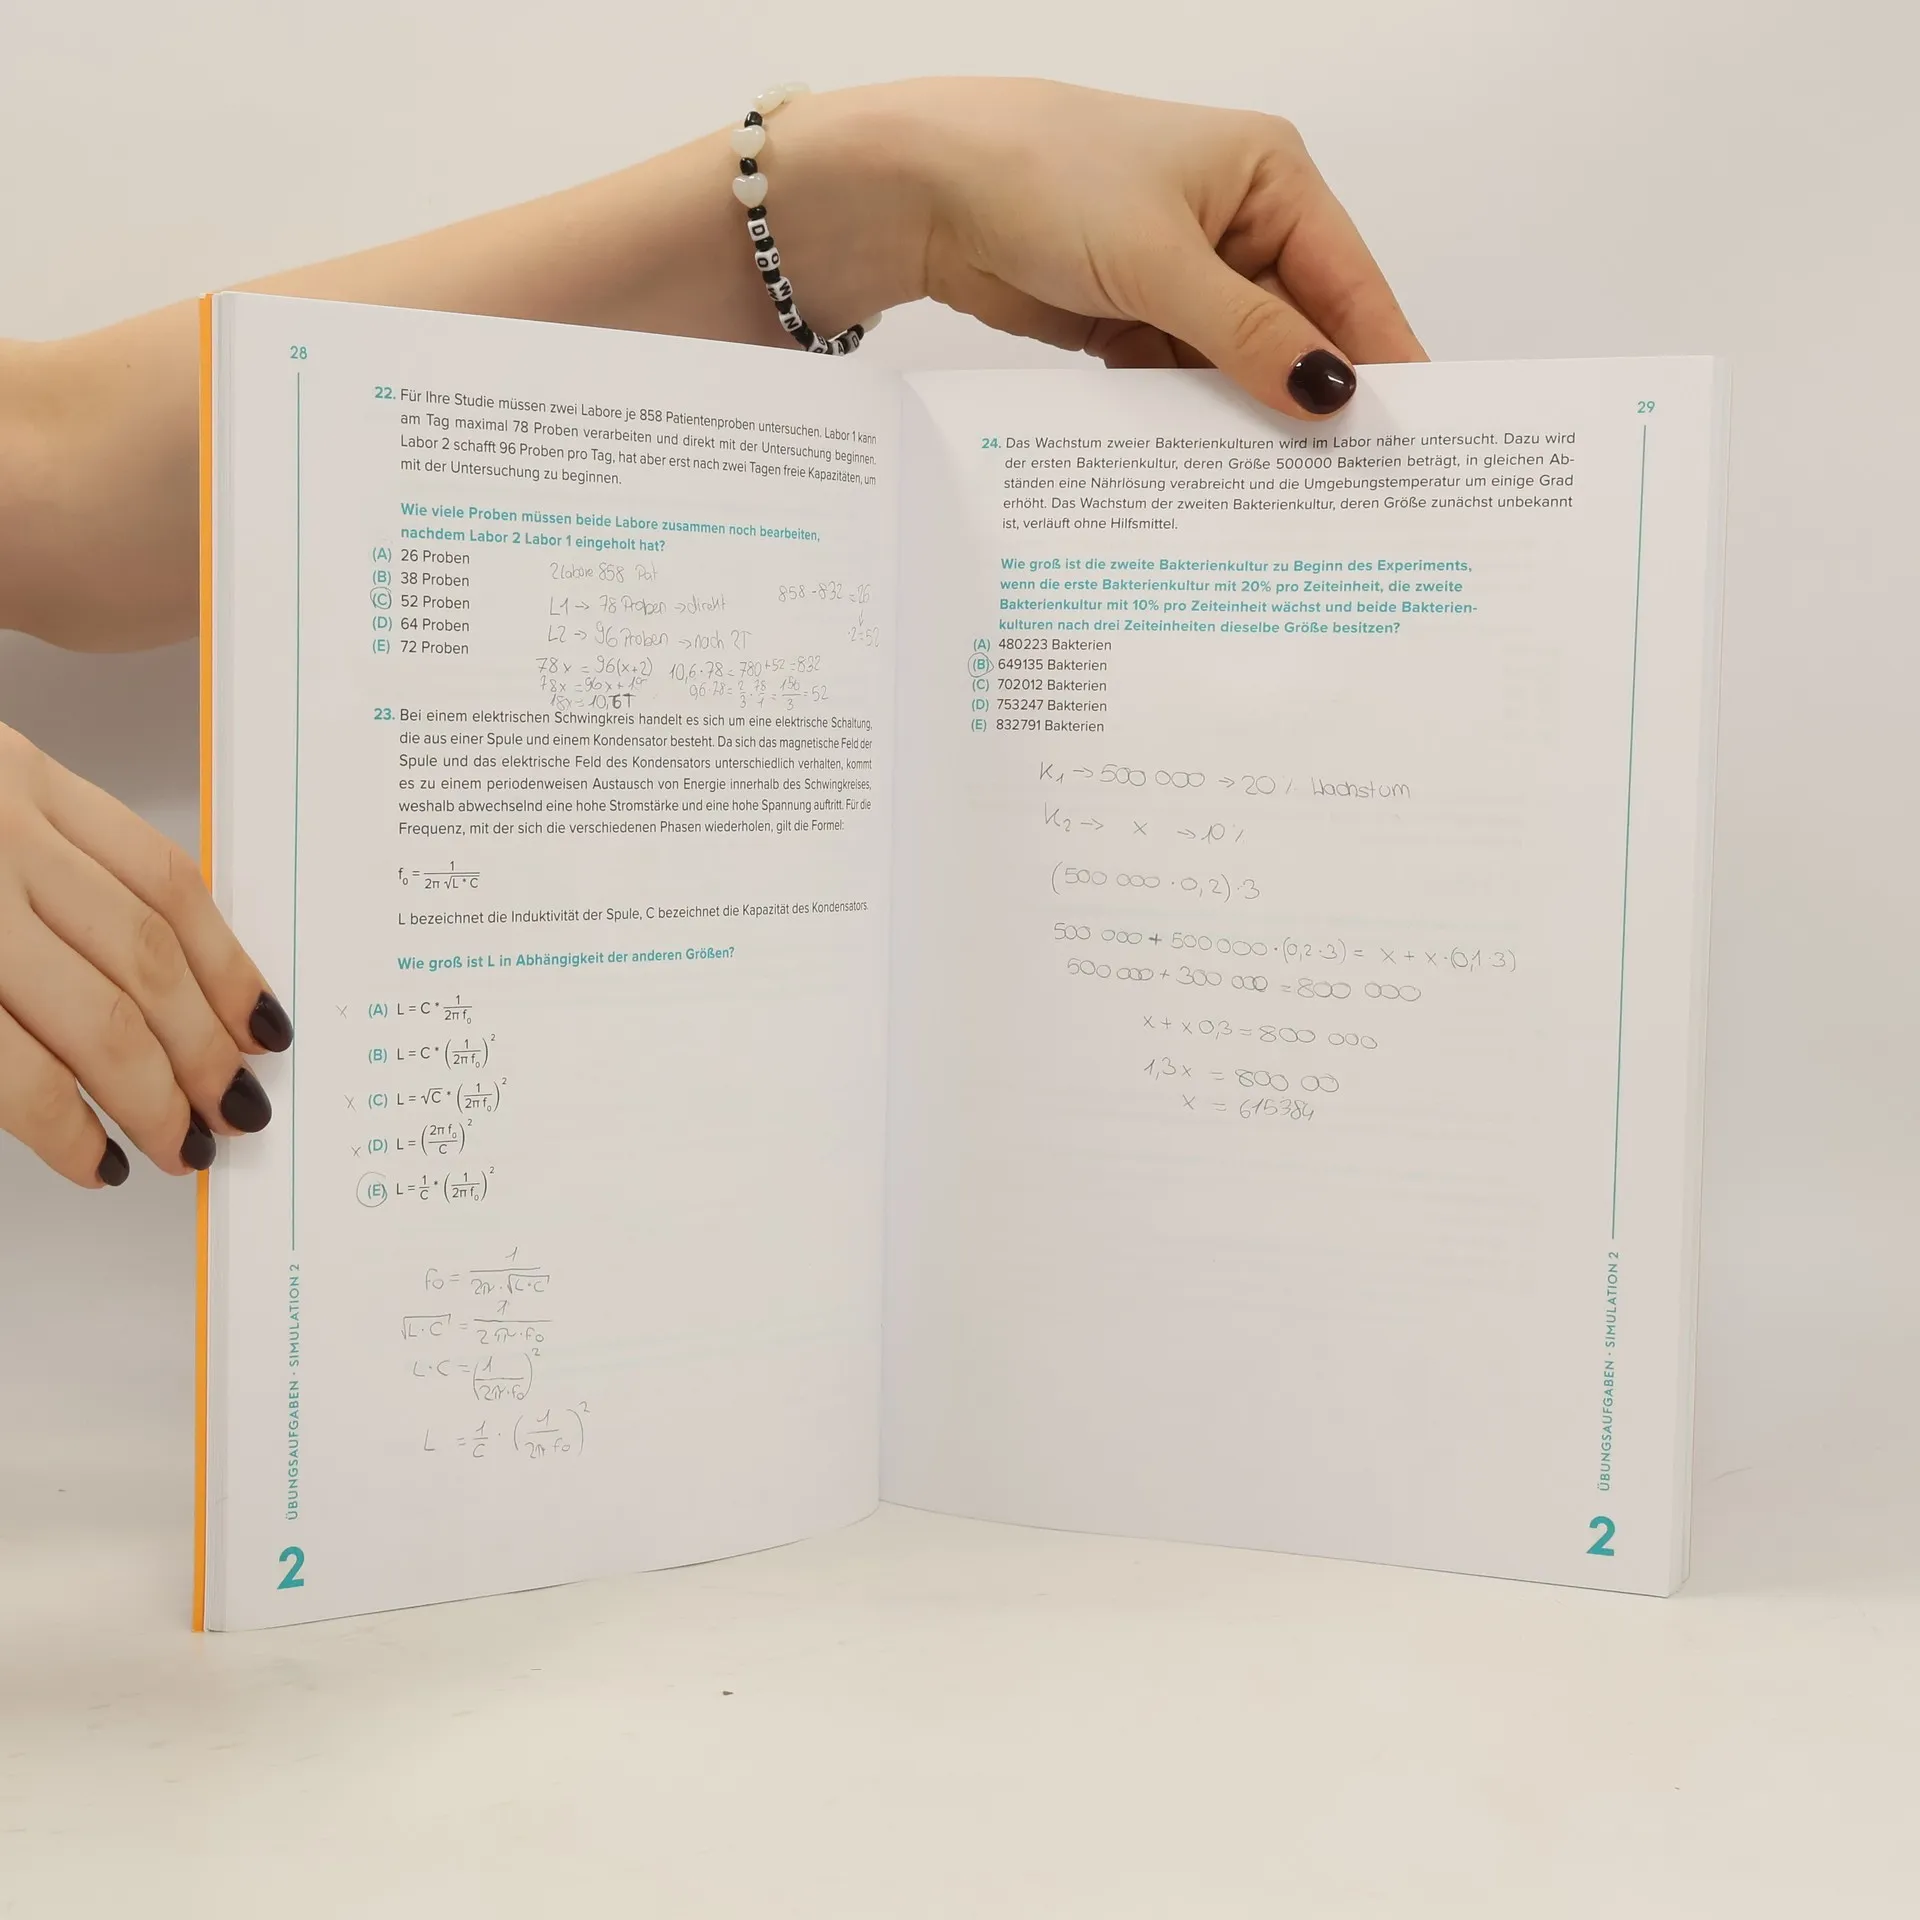 28
22. Für Ihre Studie müssen zwei Labore je 858 Patientenproben untersuchen. Labor 1 kann
am Tag maximal 78 Proben verarbeiten und direkt mit der Untersuchung beginnen.
Labor 2 schafft 96 Proben pro Tag, hat aber erst nach zwei Tagen freie Kapazitäten, um
mit der Untersuchung zu beginnen.
Wie viele Proben müssen beide Labore zusammen noch bearbeiten,
nachdem Labor 2 Labor 1 eingeholt hat?
(A) 26 Proben
(B) 38 Proben
(C) 52 Proben
(D) 64 Proben
(E) 72 Proben
2 Labore 858 Pat
L1 → 78 Proben → direkt
L2 → 96 Proben → nach 2T
858 - 832 = 26
·2=52
78x = 96(x+2)
78x = 96x + 19
18x = 10,6T
10,6·78 = 780 + 52 = 832
96·78 = 2/3 · 78/1 = 156/3 = 52
23. Bei einem elektrischen Schwingkreis handelt es sich um eine elektrische Schaltung,
die aus einer Spule und einem Kondensator besteht. Da sich das magnetische Feld der
Spule und das elektrische Feld des Kondensators unterschiedlich verhalten, kommt
es zu einem periodenweisen Austausch von Energie innerhalb des Schwingkreises,
weshalb abwechselnd eine hohe Stromstärke und eine hohe Spannung auftritt. Für die
Frequenz, mit der sich die verschiedenen Phasen wiederholen, gilt die Formel:
f₀ = 1/(2π √L * C)
L bezeichnet die Induktivität der Spule, C bezeichnet die Kapazität des Kondensators.
Wie groß ist L in Abhängigkeit der anderen Größen?
x (A) L = C * 1/(2π f₀)
(B) L = C * (1/(2π f₀))²
x (C) L = √C * (1/(2π f₀))²
x (D) L = (2π f₀/C)²
(E) L = 1/C * (1/(2π f₀))²
f₀ = 1/(2π · √L·C)
√L·C = 1/(2π·f₀)
L·C = (1/(2π·f₀))²
L = 1/C · (1/(2π f₀))²
ÜBUNGSAUFGABEN · SIMULATION 2
2
29
24. Das Wachstum zweier Bakterienkulturen wird im Labor näher untersucht. Dazu wird
der ersten Bakterienkultur, deren Größe 500000 Bakterien beträgt, in gleichen Ab-
ständen eine Nährlösung verabreicht und die Umgebungstemperatur um einige Grad
erhöht. Das Wachstum der zweiten Bakterienkultur, deren Größe zunächst unbekannt
ist, verläuft ohne Hilfsmittel.
Wie groß ist die zweite Bakterienkultur zu Beginn des Experiments,
wenn die erste Bakterienkultur mit 20% pro Zeiteinheit, die zweite
Bakterienkultur mit 10% pro Zeiteinheit wächst und beide Bakterien-
kulturen nach drei Zeiteinheiten dieselbe Größe besitzen?
(A) 480223 Bakterien
(B) 649135 Bakterien
(C) 702012 Bakterien
(D) 753247 Bakterien
(E) 832791 Bakterien
K₁ → 500 000 → 20 % Wachstum
K₂ → x → 10 %
(500 000 · 0,2)·3
500 000 + 500 000 · (0,2·3) = x + x·(0,1·3)
500 000 + 300 000 = 800 000
x + x 0,3 = 800 000
1,3x = 800 00
x = 615384
ÜBUNGSAUFGABEN · SIMULATION 2
2
DOWN